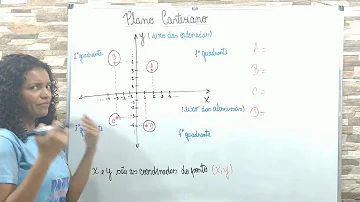 Plano Cartesiano
y (eixo das ordenadas)
2º quadrante
1º quadrante
A =
B =
C =
D =
x
(eixo das abscissas)
3º quadrante
4º quadrante
x e y são as coordenadas do ponto (x,y)